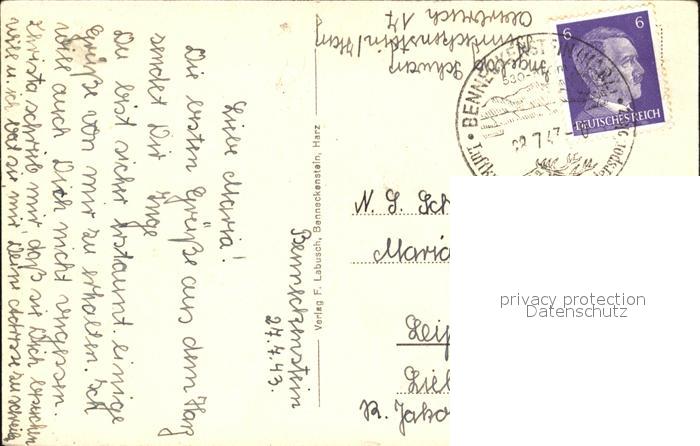 Benneckenstein
27.7.43.
Liebe Maria!
Die ersten Grüße aus dem Harz
sendet Dir Inge
Du bist sicher erstaunt einige
Grüße von mir zu erhalten. Ich
will auch Dich nicht vergessen.
Christa schrieb mir daß sie Dich besuchen
will u. ich bat sie mir Deine
Verlag F. Labusch, Benneckenstein, Harz
Ingeborg Schwarz
Benneckenstein/Harz
Oberbreich 17
6 6
DEUTSCHES REICH
BENNECKENSTEIN (HARZ)
7.43
Luftku
N. S. Sch
Maria
Leip
R. Jako
privacy protection
Datenschutz